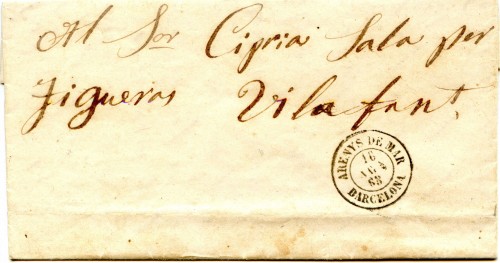 Al Sor Cipria Sala per
Figueras Vilafant
ARENYS DE MAR
16
AGo
68
BARCELONA